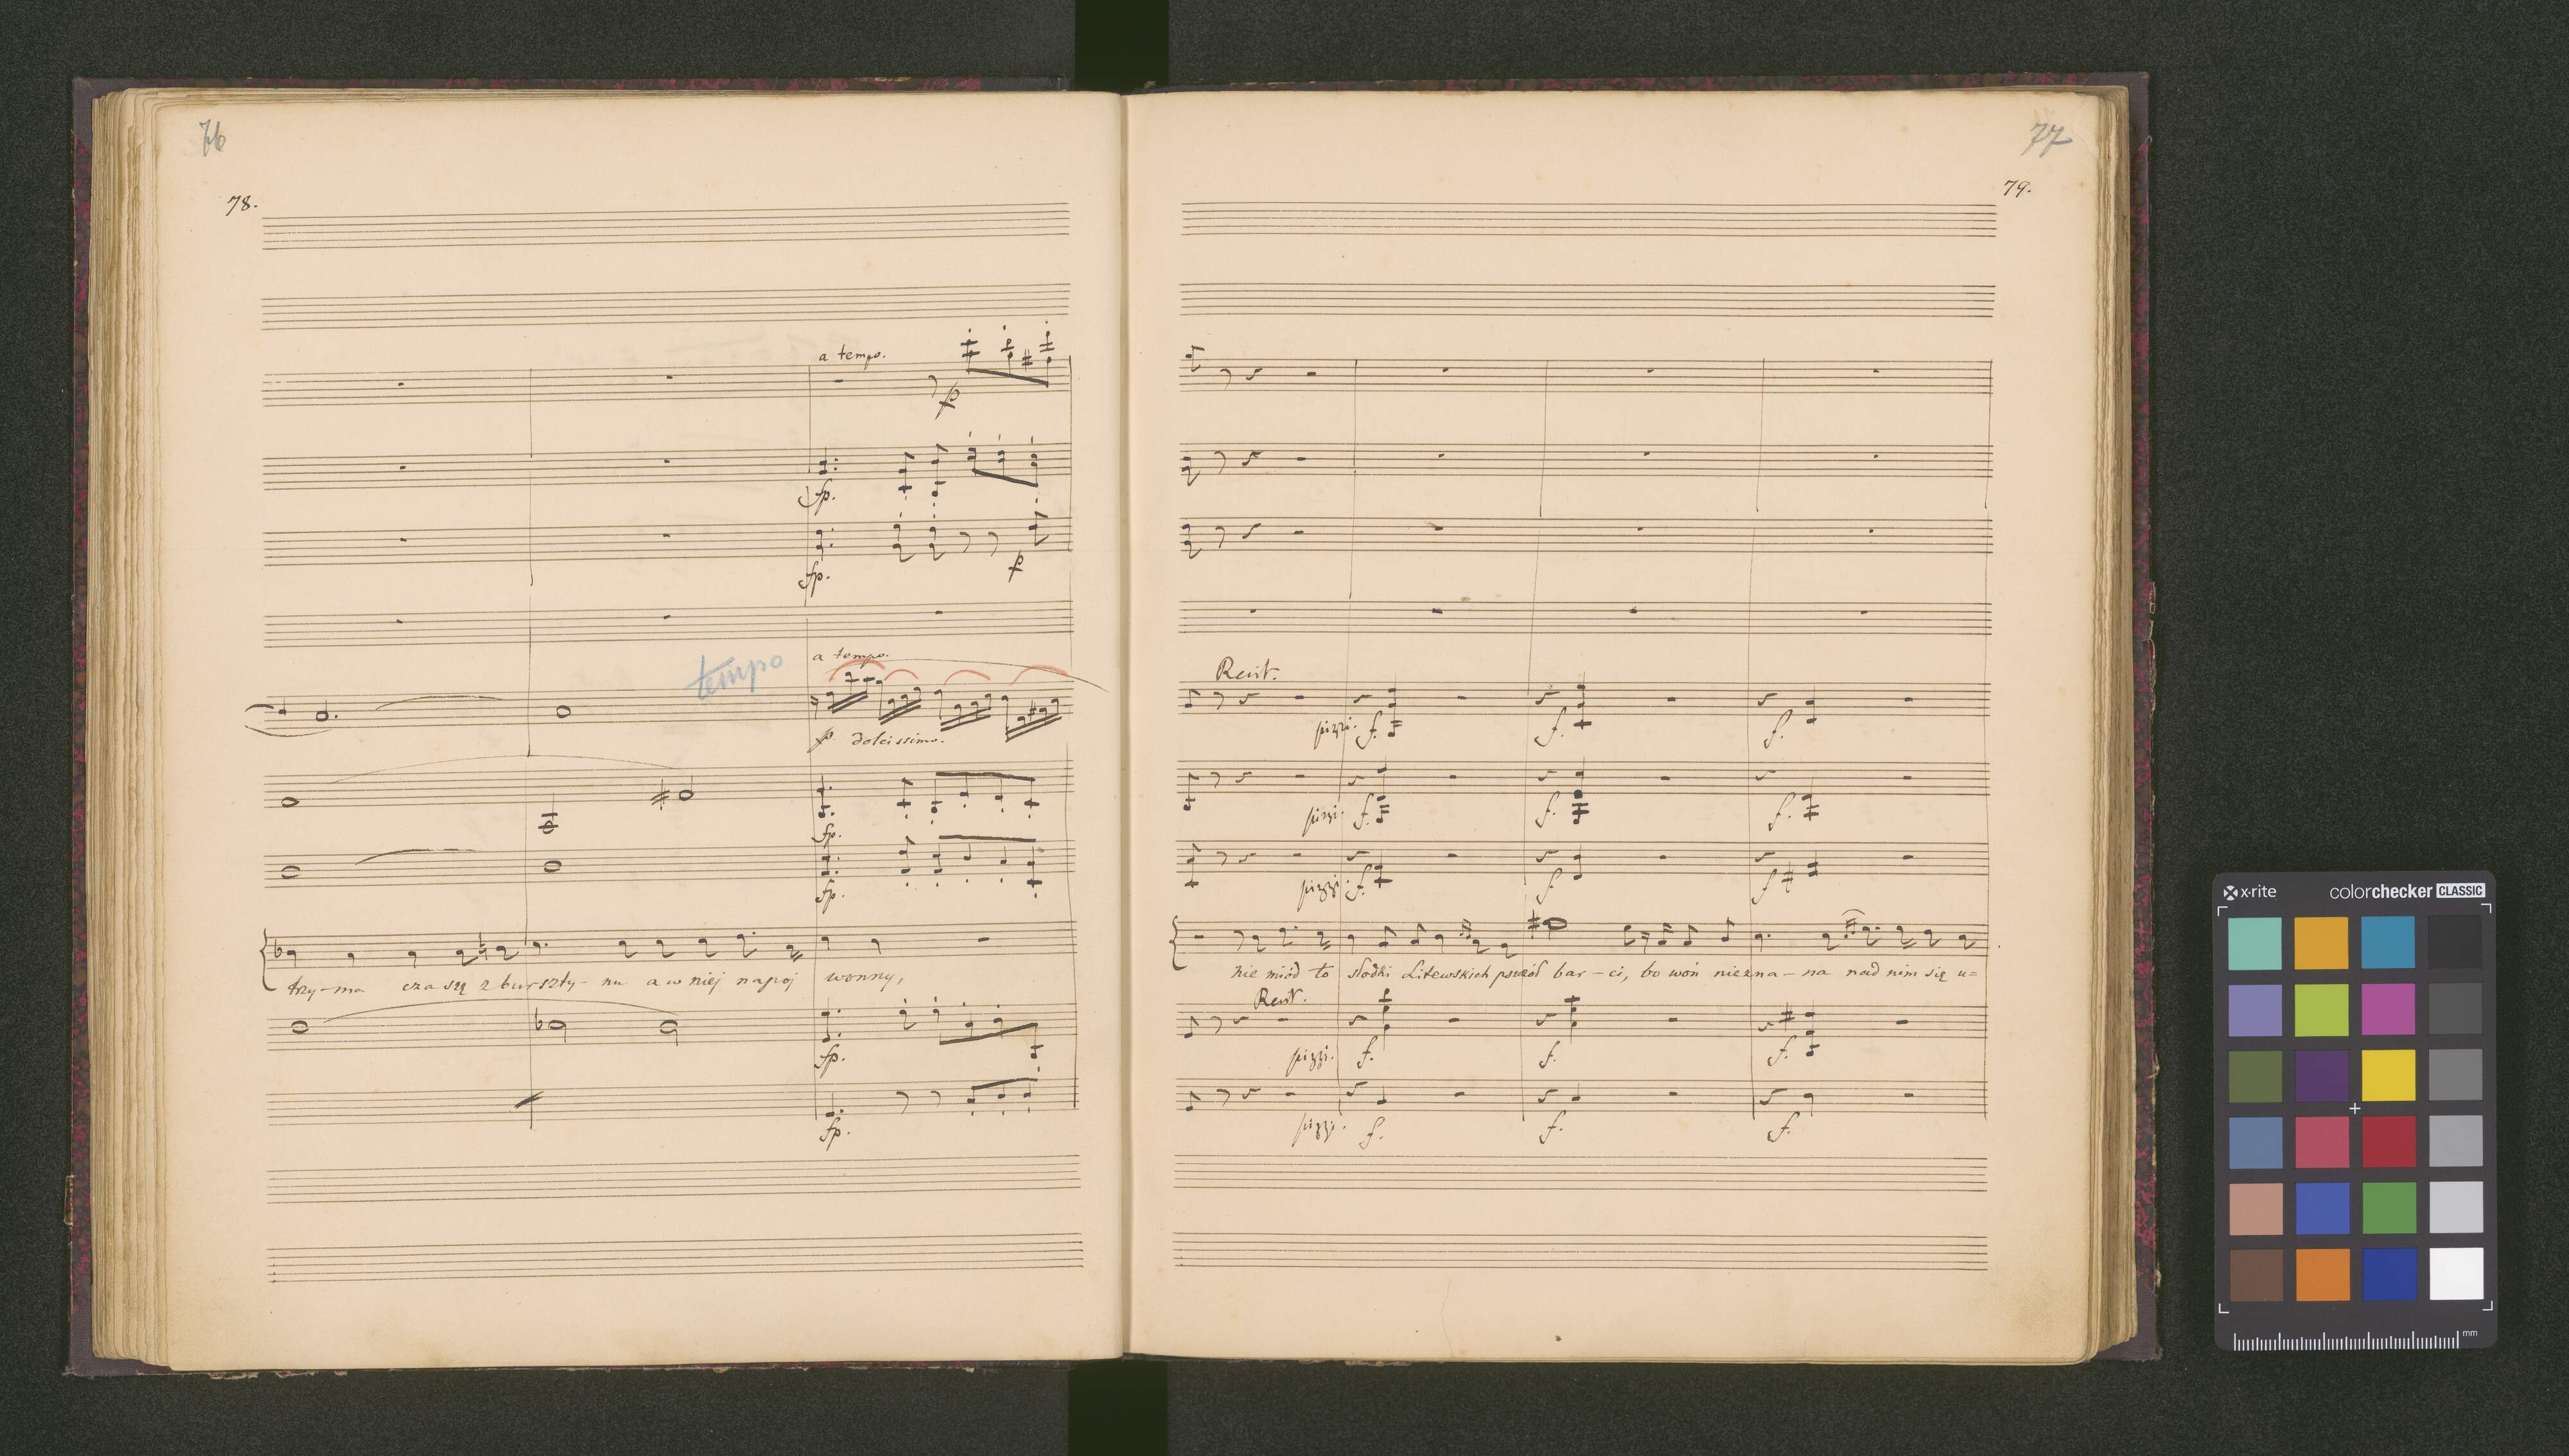 76
78.
a tempo.
p
fp.
fp.
p
tempo
a tempo.
p dolcissimo.
fp.
fp.
trzy-ma czaszę z burszty-nu a w niej napój wonny,
fp.
fp.
77
79.
Recit.
pizzi. f. f. f.
pizzi. f. f. f.
pizzi. f. f. f
nie miód to słodki Litewskich pszczół bar-ci, bo woń niezna-na nad nim się u=
Recit.
pizzi. f. f. f.
pizzi. f. f. f.
x-rite colorchecker CLASSIC
mm